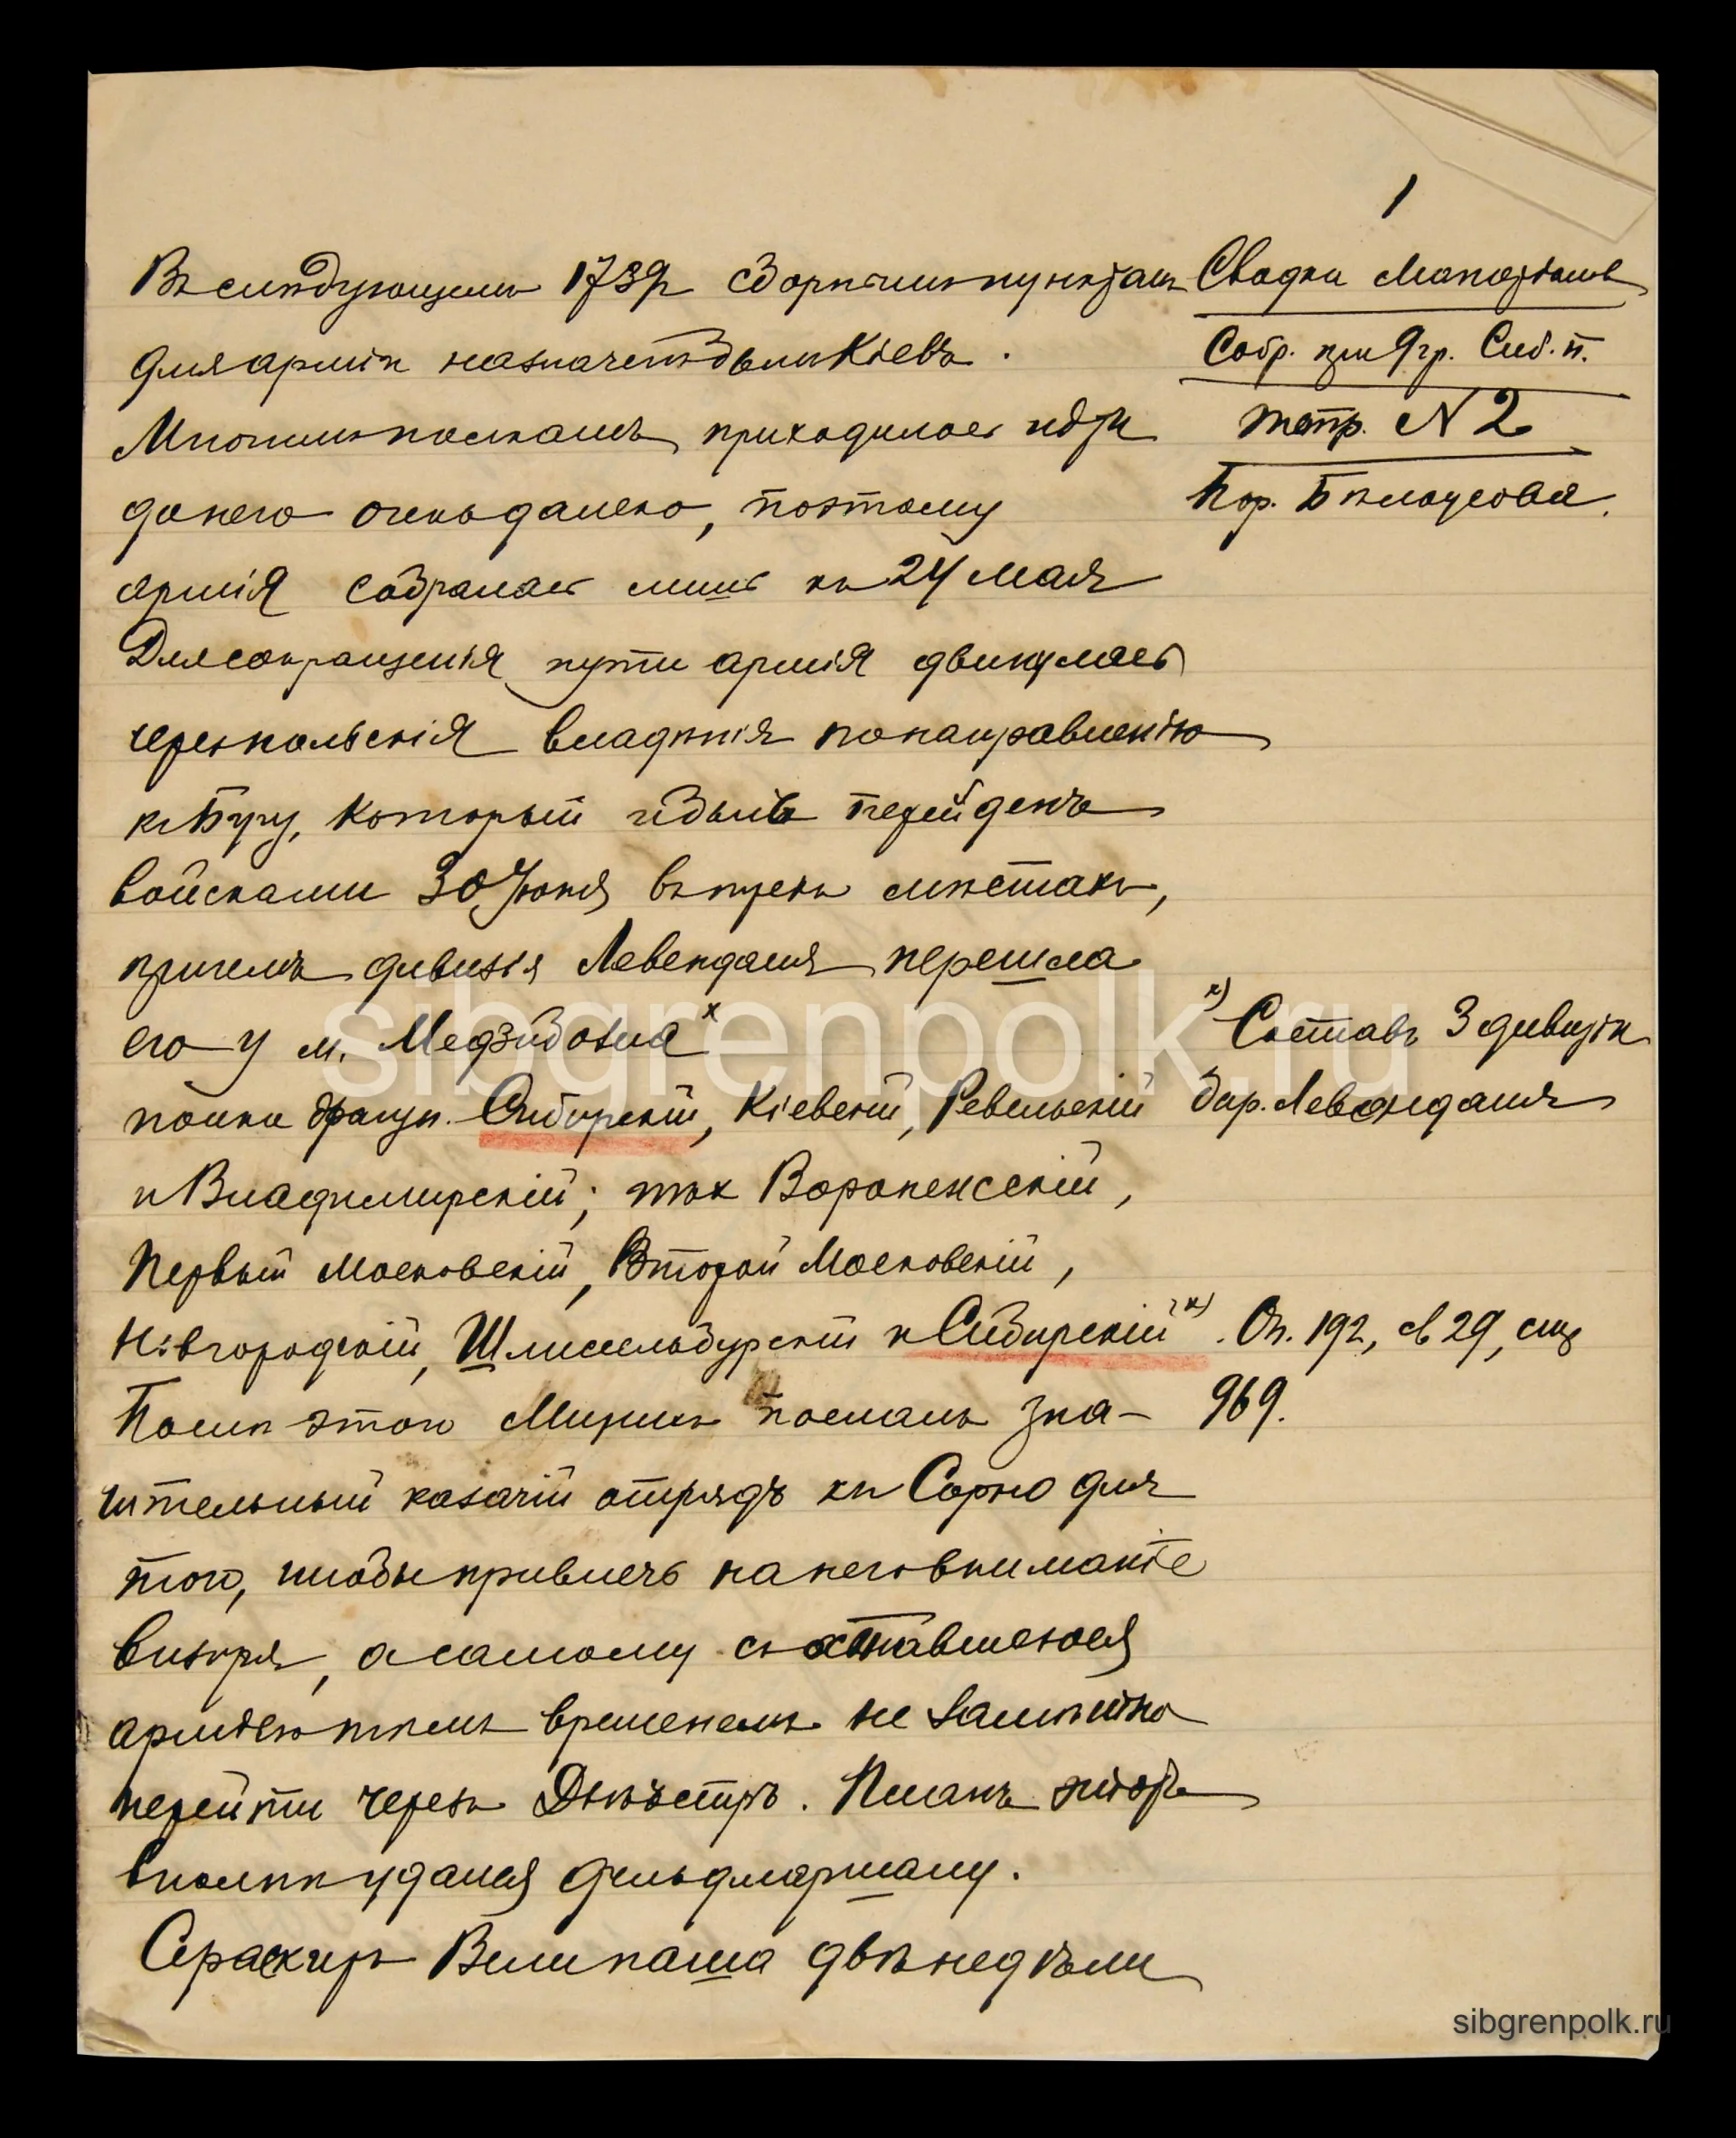 1
Въ следующемъ 1739г сборнымъ пунктомъ
для арміи назначенъ былъ Кіевъ.
Многимъ полкамъ приходилось идти
до него очень далеко, поэтому
армія собралась лишь къ 24 мая
Для сокращенія пути армія двинулась
черезъ польскія владѣнія по направленію
къ Бугу, который и былъ перейденъ
войсками 30 Іюня въ трехъ мѣстахъ,
причемъ дивизія Левендаля перешла
его у м. Меджибожа х
полки драгун. Сибирскій, Кіевскій, Ревельскій
и Владимирскій; пѣх Воронежскій,
Первый Московскій, Второй Московскій,
Новгородскій, Шлиссельбургскій и Сибирскій х)
Послѣ этого Минихъ послалъ зна-
чительный казачій отрядъ къ Сороко для
того, чтобы привлечь на него вниманіе
визиря, а самому съ оставшеюся
арміею тѣмъ временемъ не замѣтно
перейти черезъ Днѣстръ. Планъ этотъ
вполнѣ удался фельдмаршалу.
Сераскиръ Вели паша двѣ недѣли
Сводка Матерьяловъ
Собр. при 9 гр. Сиб. п.
тетр. N 2
Пор. Бѣлоусова.
х) Составъ 3 дивизіи
бар. Левендаля
Оп. 192, св 29,
969.
sibgrenpolk.ru
sibgrenpolk.ru